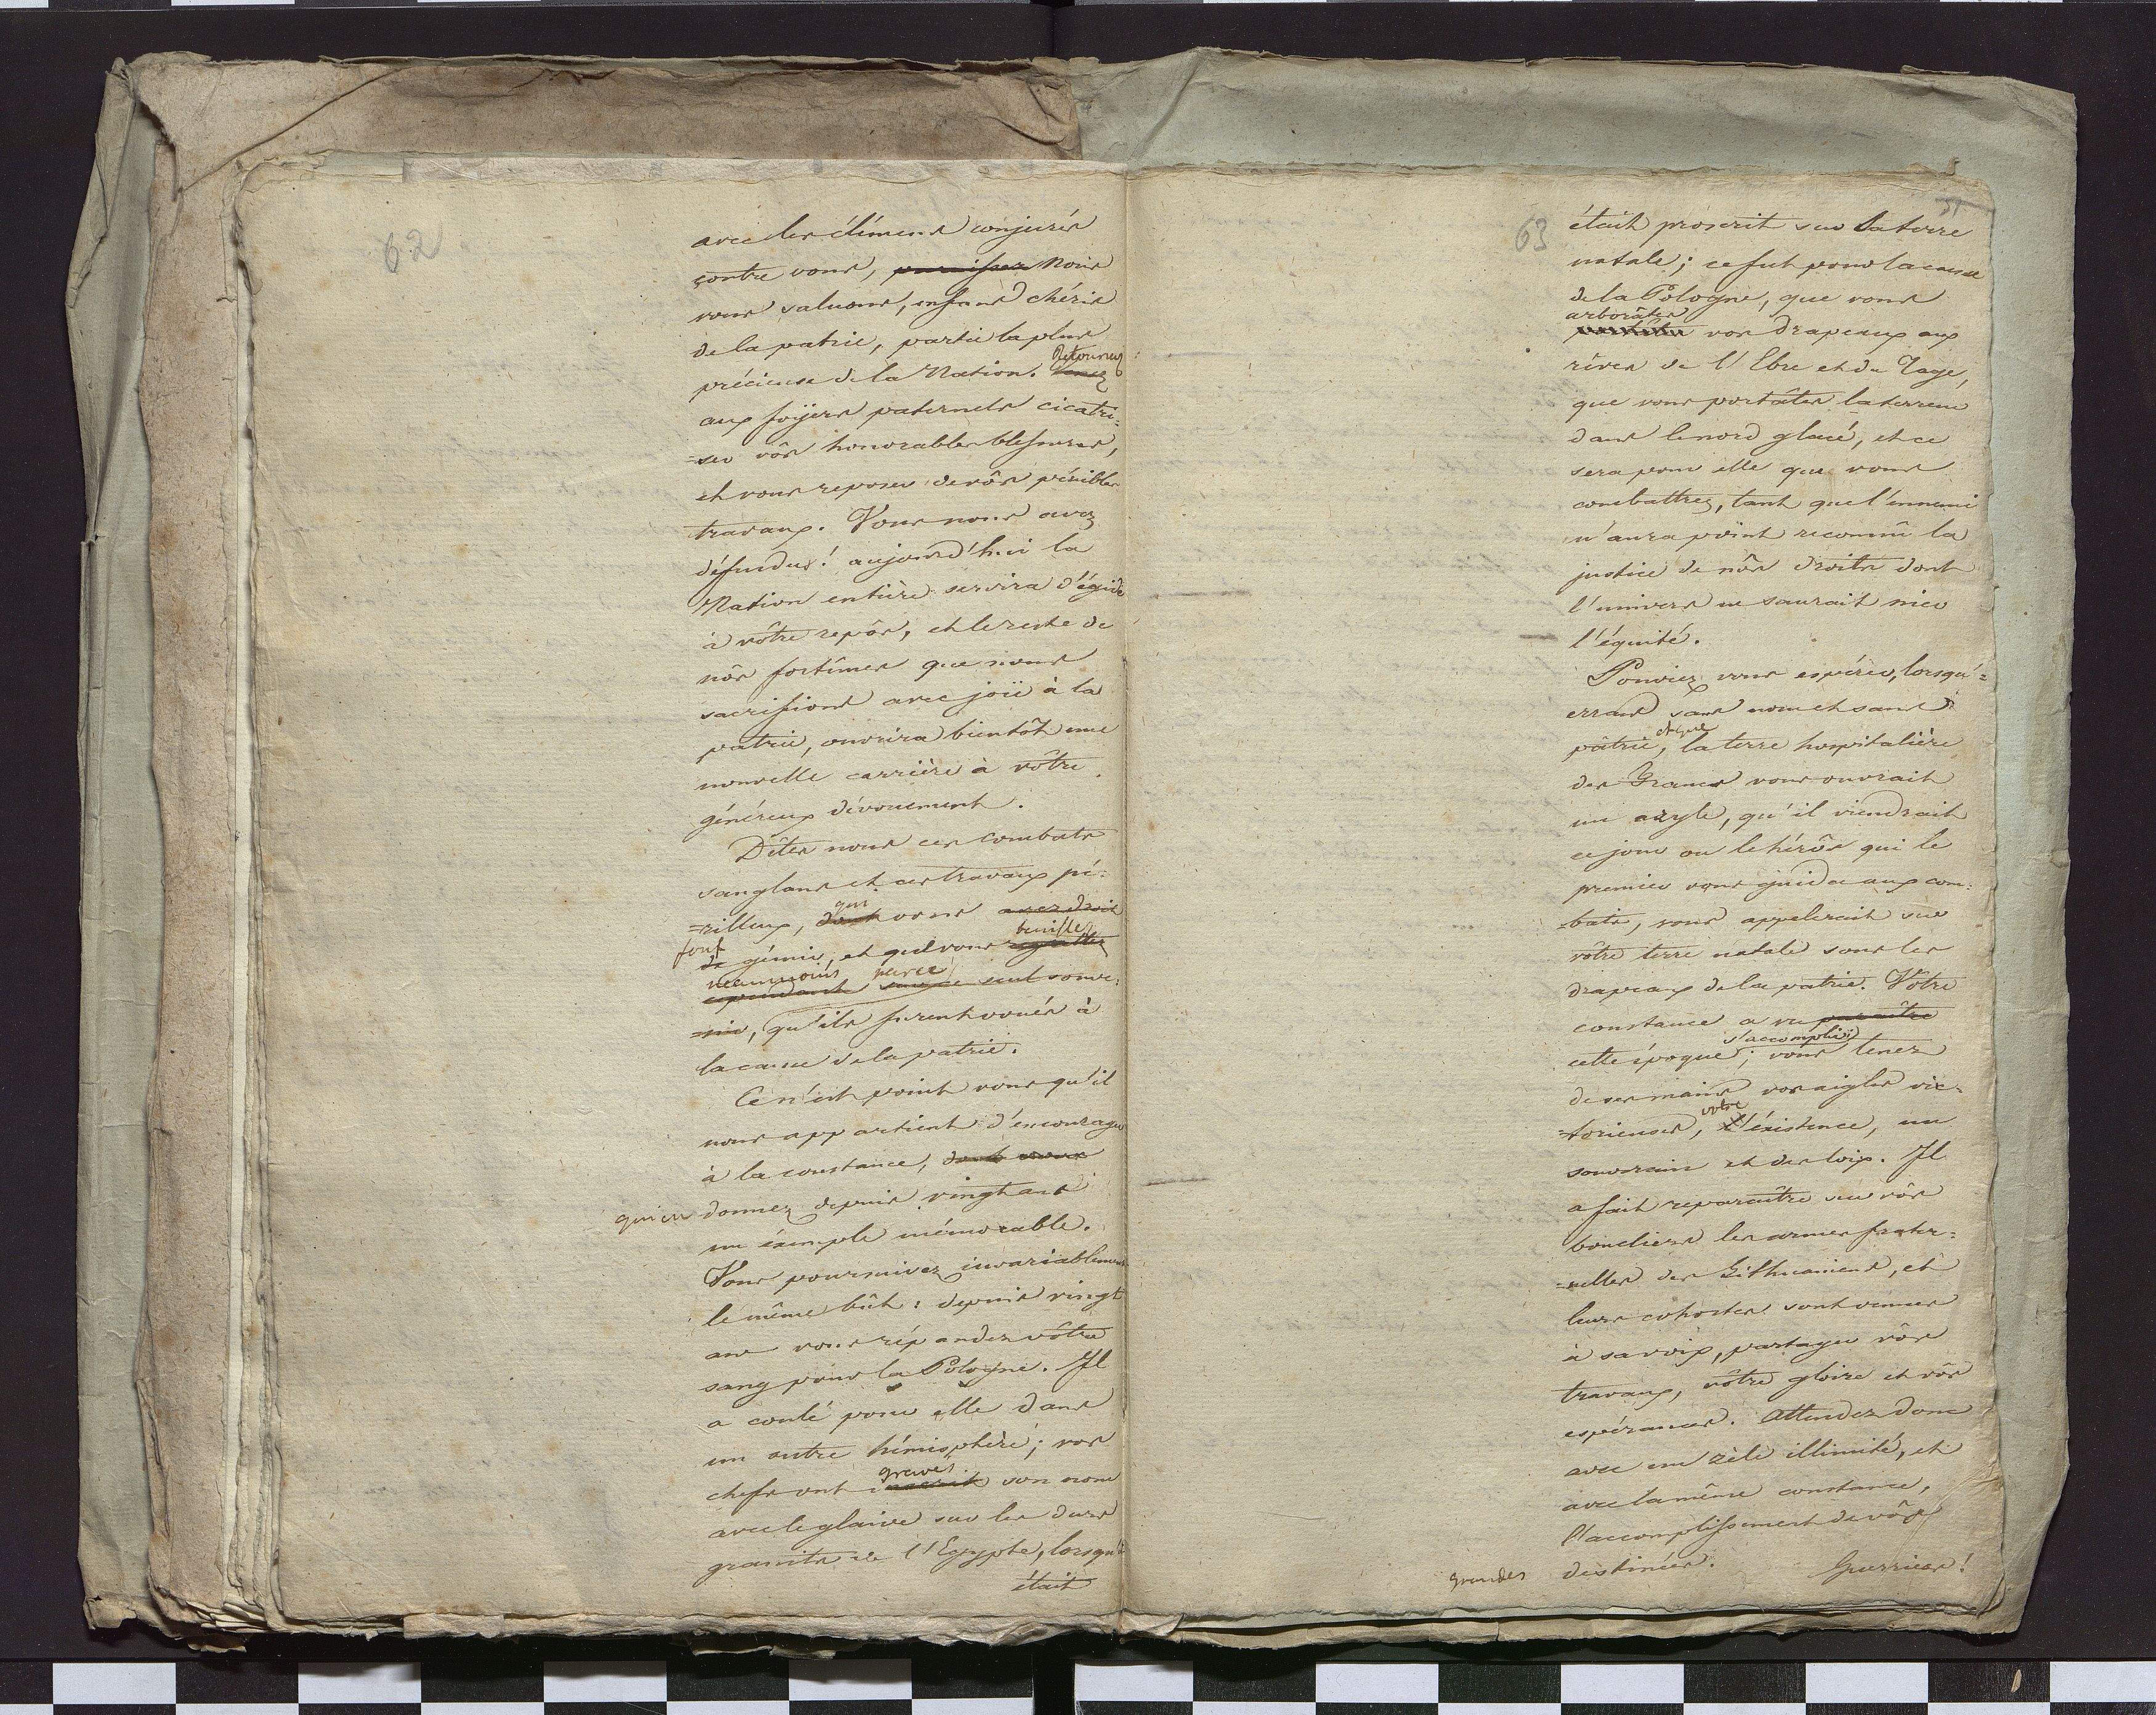 62
avec les élémens conjurés
contre vous, Nous
vous saluons, enfans chéris
de la patrie, partie la plus
précieuse de la Nation. Retournez
aux foÿers paternels cicatri=
=ser vôs honorables blessures,
et vous reposer de vôs pénibles
travaux. Vous nous avez
défendus! aujourd'hui la
Nation entière servira d'égide
à vôtre repôs, et le reste de
nôs fortunes que nous
sacrifions avec joïe à la
patrie, ouvrira bientôt une
nouvelle carrière à vôtre
généreux dévouement.
Dites nous ces combats
sanglans et ces travaux pé=
qui
=rilleux, dont vous avez droit
benissez
font
de gémir, et que vous
neanmoins parce
cependant sont souve=
=nir, qu'ils furent voués à
la cause de la patrie.
Ce n'est point vous qu'il
nous appartient d'encourager
à la constance, dont vous
qui en donnez depuis vingt ans
un éxemple mémorable.
Vous poursuivez invariablement
le même bût: depuis vingt
ans vous répandez vôtre
sang pour la Pologne. Il
a coulé pour elle dans
un autre hémisphère; vos
gravés
chefs ont inscrit son nom
avec le glaive sur les durs
granits de l'Egypte, lorsqu'il
était
51
63
était proscrit sur la terre
natale; ce fut pour la cause
de la Pologne, que vous
arborâtes
vos drapeaux aux
rives de l'Ebre et du Tage,
que vous portâtes la terreur
dans le nord glacé, et ce
sera pour elle que vous
combattrez, tant que l'ennemi
n'aura point reconnû la
justice de nôs droits dont
l'univers ne saurait nier
l'équité.
Pouviez vous espérer, lorsqu'=
errans sans nom et sans
et que
pâtrie, la terre hospitalière
des Francs vous ouvrait
un azyle, qu'il viendrait
ce jour ou le hérôs qui le
premier vous guida aux com=
=bats, vous appelerait sur
vôtre terre natale sous les
drapeaux de la patrie. Vôtre
constance a vu paraître
s'accomplir
cette époque; vous tenez
de ses mains vos aigles vic=
votre
=torieuses, l'éxistence, un
souverain et des loix. Il
a fait reparaître sur vôs
boucliers les armes frater=
=nelles des Lithuaniens, et
leurs cohortes sont venues
à sa voix, partager vôs
travaux, vôtre gloire et vôs
espérances. Attendez donc
avec un zèle illimité, et
avec la même constance,
l'accomplissement de vôs
grandes destinées. Guerriers!